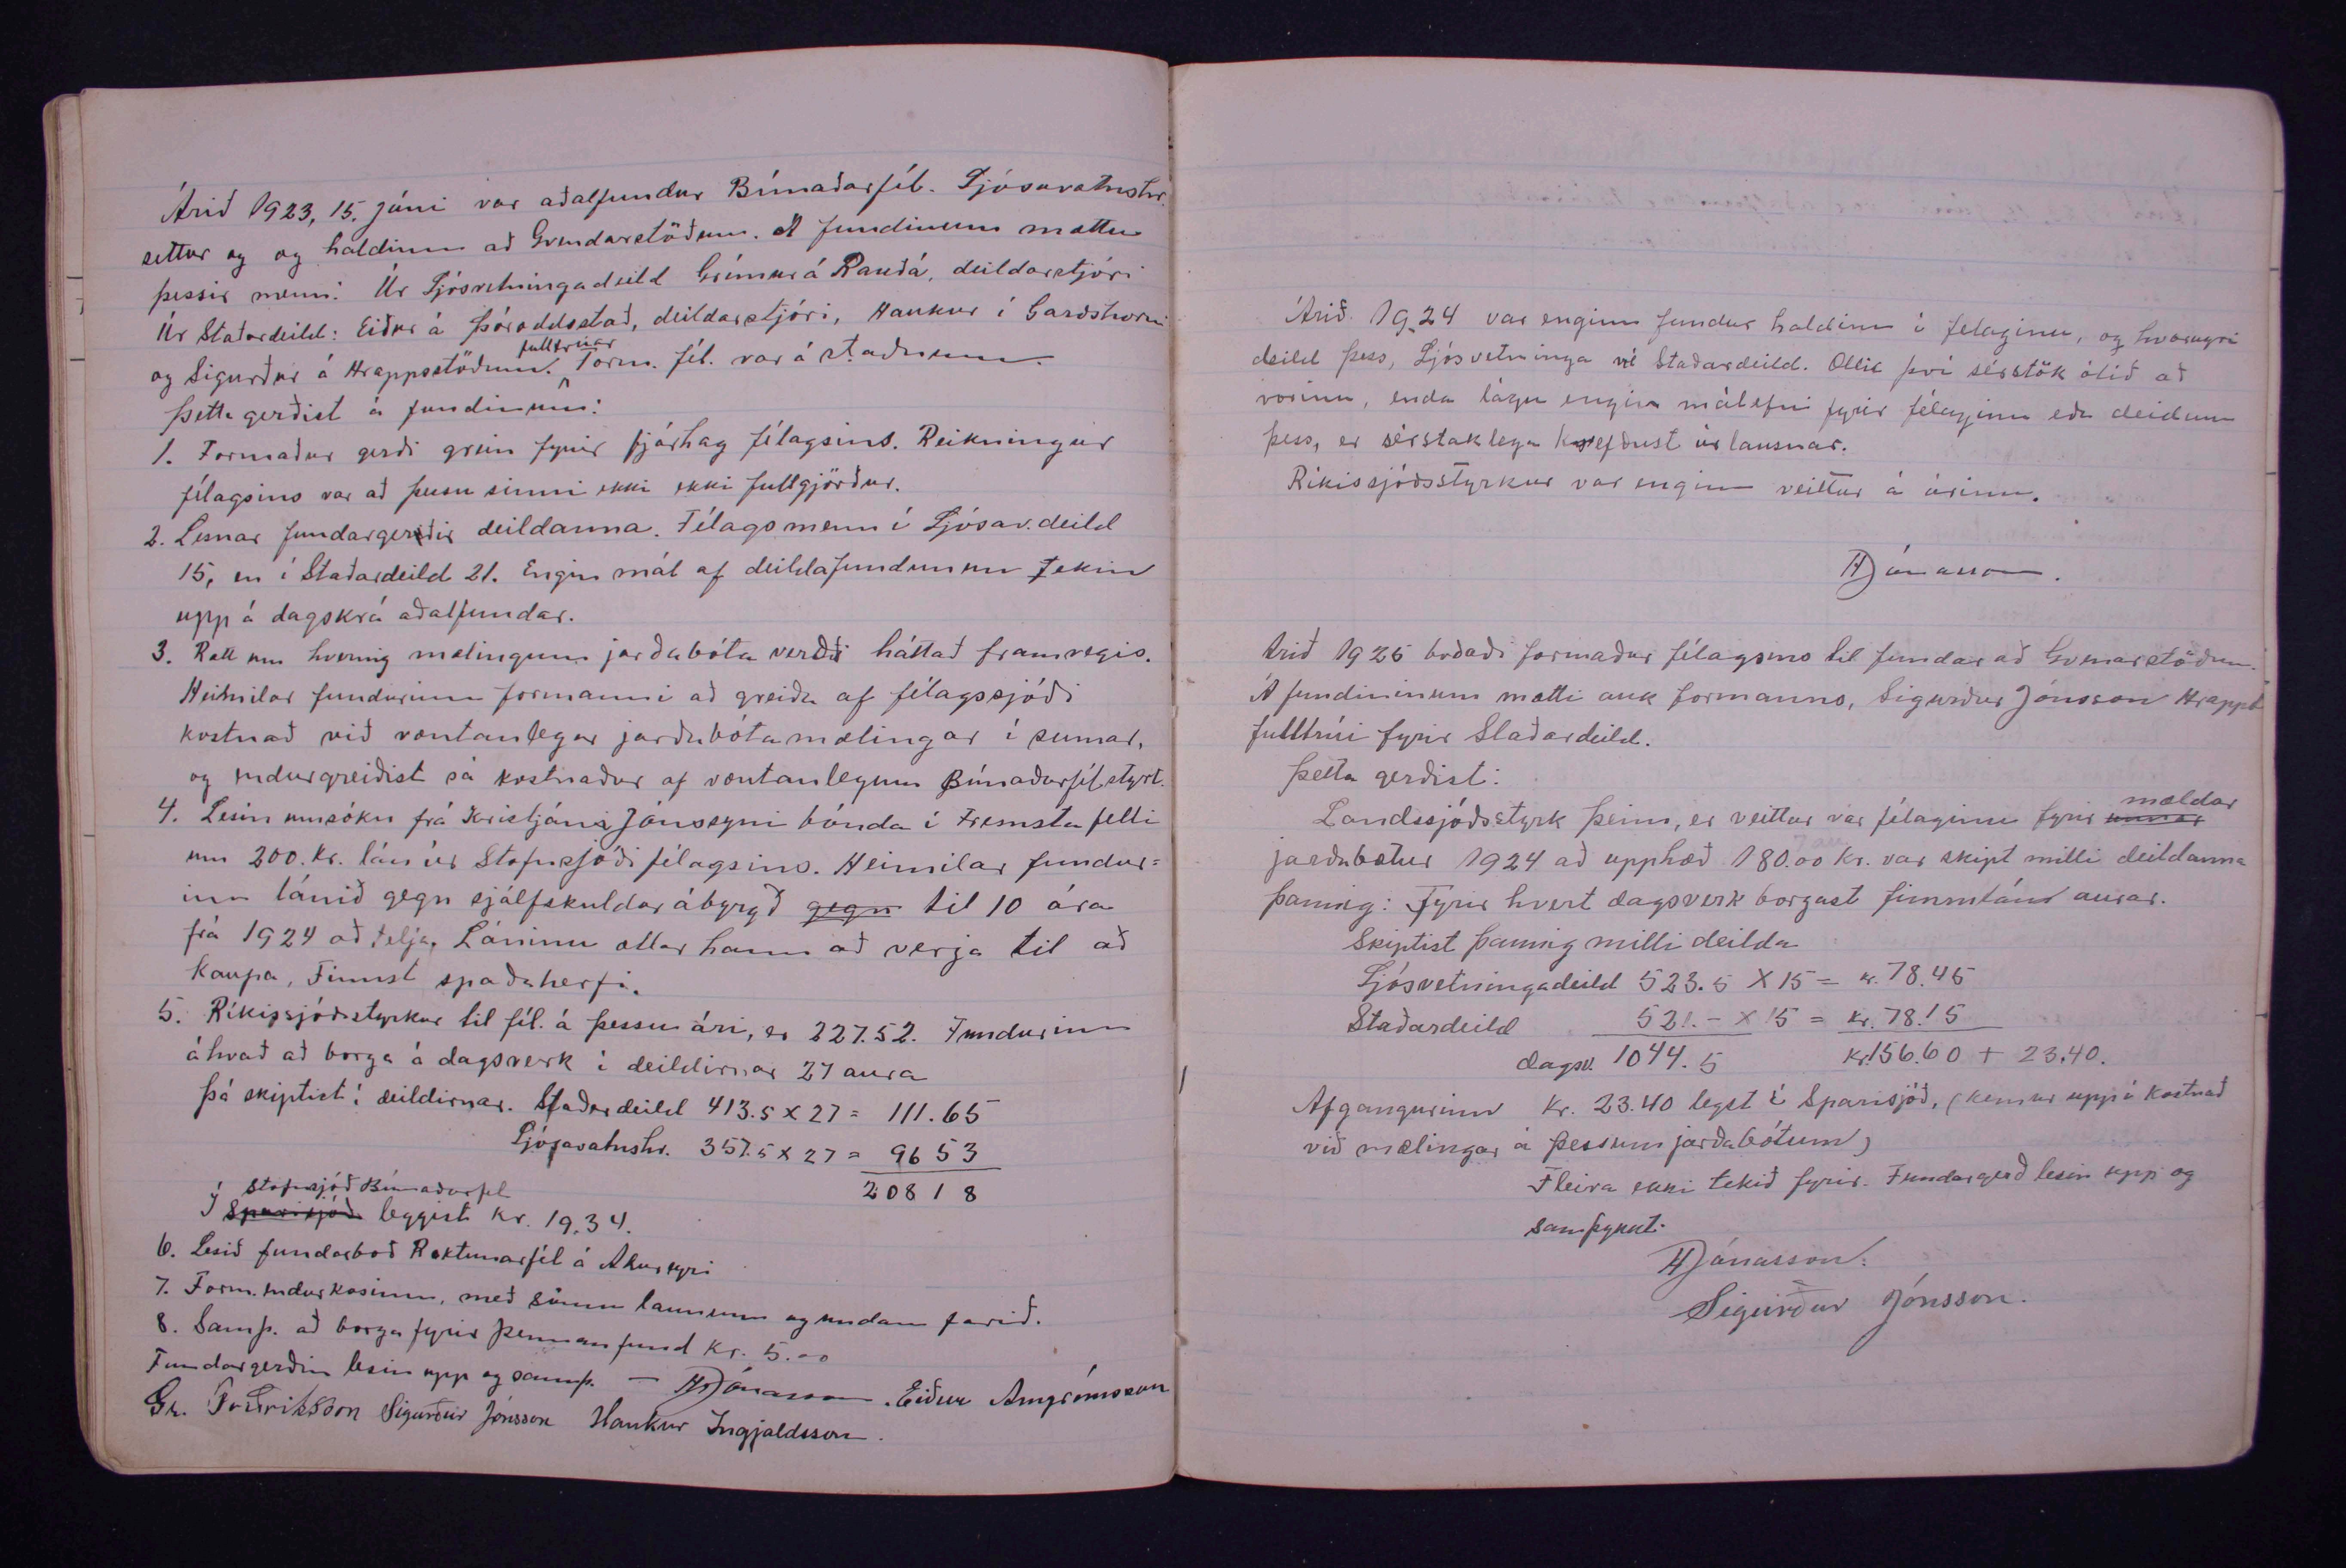 Árið 1923, 15. júni var aðalfundur Búnaðarfél. Ljósavatnshr.
settur og og haldinn að Gvendarstöðum. Á fundinum mættu
þessir menn: Úr Ljósvetningadeild Grímur á Rauðá, deildarstjóri
Úr Staðardeild: Eiður á Þóroddsstað, deildarstjóri, Haukur í Garðshorni
og Sigurður á Hrappsstöðum. fulltrúar Form. fél. var á staðnum.
Þetta gerðist á fundinum:
1. Formaður gerði grein fyrir fjárhag félagsins. Reikningur
félagsins var að þessu sinni ekki ekki fullgjörður.
2. Lesnar fundargerðir deildanna. Félagsmenn í Ljósav.deild
15, en í Staðardeild 21. Engin mál af deildafundunum tekin
upp á dagskrá aðalfundar.
3. Rætt um hvernig mælingum jarðabóta verði háttað framvegis.
Heimilar fundurinn formanni að greiða af félagssjóði
kostnað við væntanlegar jarðabótamælingar í sumar,
og endurgreiðist sá kostnaður af væntanlegum Búnaðarfél.styrk.
4. Lesin umsókn frá Kristjáni Jónssyni bónda í Fremstafelli
um 200. kr. lán úr Stofnsjóði félagsins. Heimilar fundur=
inn lánið gegn sjálfskuldarábyrgð gegn til 10 ára
frá 1924 að telja. Láninu ætlar hann að verja til að
kaupa, Finnst spaðaherfi.
5. Ríkissjóðsstyrkur til fél. á þessu ári, er 227.52. Fundurinn
ákvað að borga á dagsverk í deildirnar 27 aura
Þá skiptist í deildirnar. Staðardeild 413.5 x 27 = 111.65
Ljósavatnshr. 357.5 x 27 = 96 53
208 18
Í Stofnsjóð Búnaðarfél
Sparisjóð leggist kr. 19.34.
6. Lesið fundarboð Ræktunarfél á Akureyri
7. Form. endurkosinn, með sömu launum og undan farið.
8. Samþ. að borga fyrir þennan fund kr. 5.00
Fundargerðin lesin upp og samþ. — HJónasson. Eiður Arngrímsson
Gr. Friðriksson Sigurður Jónsson Haukur Ingjaldsson.
Árið 1924 var enginn fundur haldinn í felaginu, og hvorugri
deild þess, Ljósvetninga né Staðardeild. Ollir því sérstök ótíð að
vorinu, enda lágu engin málefni fyrir félaginu eða deidum
þess, er sérstaklega krefðust úrlausnar.
Ríkissjóðsstyrkur var enginn veittur á árinu.
HJónasson.
Árið 1925 boðaði formaður félagsins til fundar að Gvenarstöðum.
Á fundininum mætti auk formanns, Sigurður Jónsson Hrappst
fulltrúi fyrir Staðardeild.
Þetta gerðist:
Landssjóðsstyrk þeim, er veittur var félaginu fyrir unnar mældar
jarðabætur 1924 að upphæð 180.00 kr. var skipt milli deildanna
þannig: Fyrir hvert dagsverk borgast fimmtán aurar.
Skiptist þannig milli deilda
Ljósvetningadeild 523.5 X 15 = kr. 78.45
Staðardeild 521.- x 15 = kr. 78.15
dagsv. 1044.5 kr. 156.60 + 23.40.
Afgangurinn kr. 23.40 legst í Sparisjóð, (kemur upp í kostnað
við mælingar á þessum jarðabótum)
Fleira ekki tekið fyrir. Fundargerð lesin upp og
samþykkt.
HJónasson.
Sigurður Jónsson.